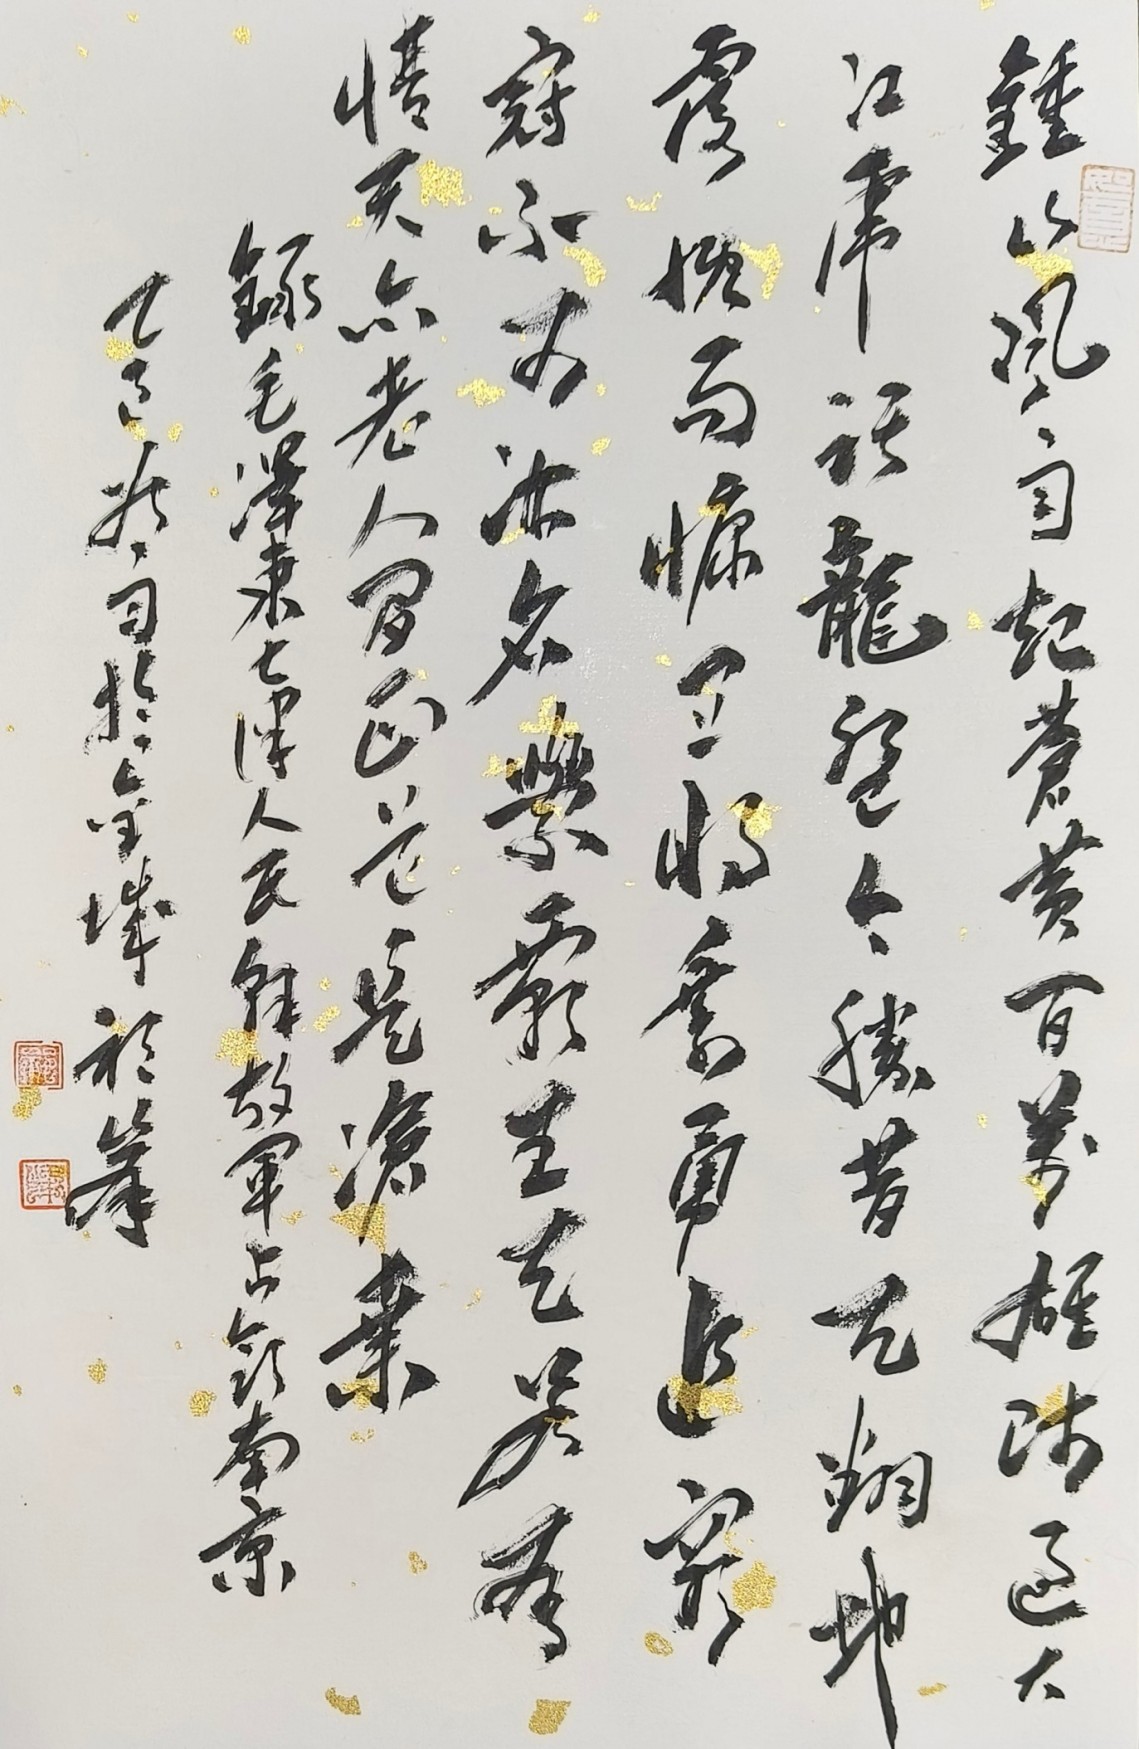 鍾山風雨起蒼黃百萬雄師過大
江虎踞龍盤今勝昔天翻地
覆慨而慷宜將剩勇追窮
寇不可沽名學霸王天若有
情天亦老人間正道是滄桑
錄毛澤東七律人民解放軍占領南京
乙巳秋月於金城